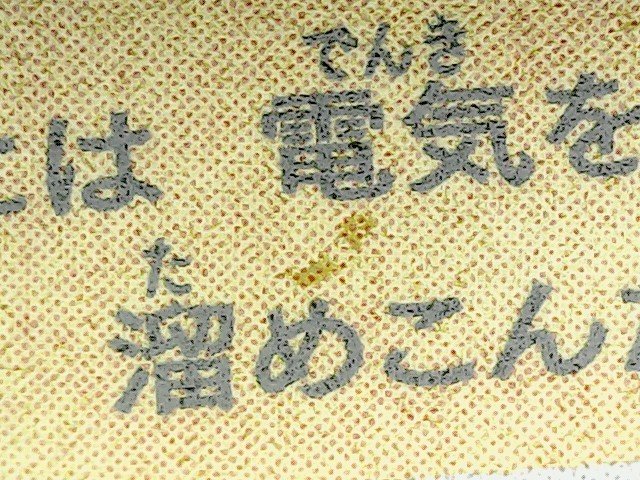 でんき
には電気を
た
溜めこん